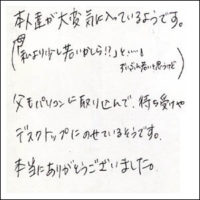 本人達が大変気に入っているようです。
(「私より少し若いかしら!?」と…!
ずいぶん若いと思うけど)
父もパソコンに取り込んで、待ち受けや
デスクトップにのせているそうです。
本当にありがとうございました。